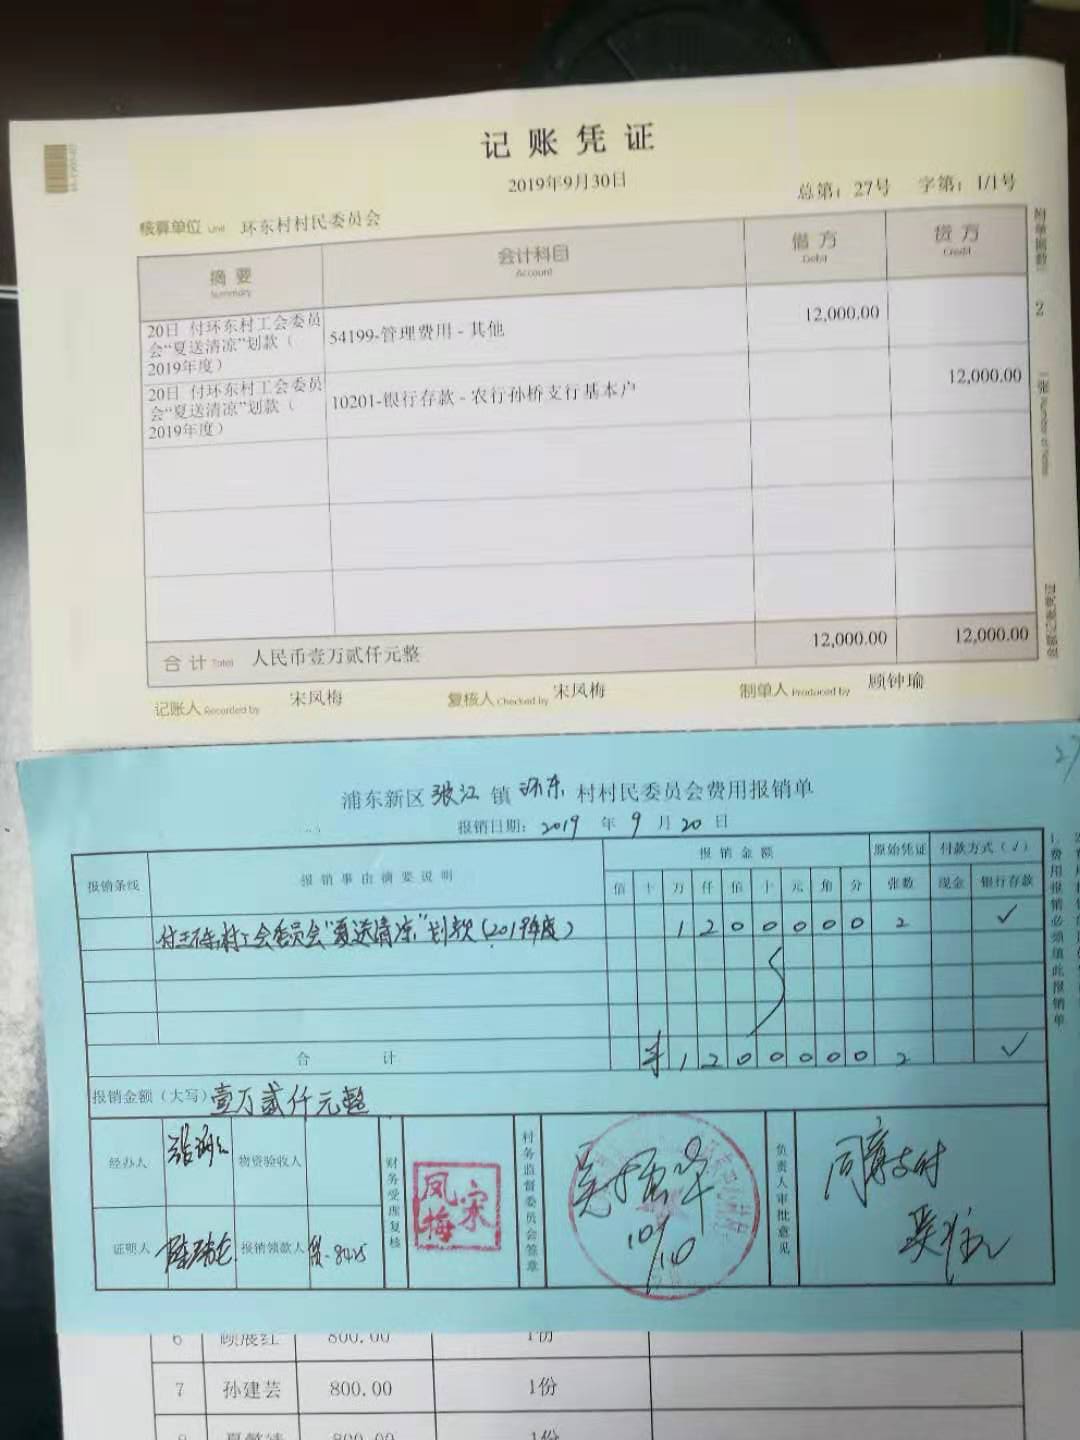 记账凭证
2019年9月30日
总第：27号 字第：1/1号
核算单位 Unit 环东村村民委员会
附单据数 2 张
摘要 Summary 会计科目 Account 借方 Debit 贷方 Credit
20日 付环东村工会委员
会“夏送清凉”划款（
2019年度）
54199-管理费用 - 其他 12,000.00
20日 付环东村工会委员
会“夏送清凉”划款（
2019年度）
10201-银行存款 - 农行孙桥支行基本户 12,000.00
合计 Total 人民币壹万贰仟元整 12,000.00 12,000.00
金额记账凭证
记账人 Recorded by 宋凤梅 复核人 Checked by 宋凤梅 制单人 Produced by 顾钟瑜
27
浦东新区 张江 镇 环东 村村民委员会费用报销单
报销日期：2019 年 9 月 20 日
报销条线 报销事由摘要说明 报销金额 原始凭证 付款方式（√）
佰 十 万 仟 佰 十 元 角 分 张数 现金 银行存款
付环东村工会委员会“夏送清凉”划款（2019年度） 1 2 0 0 0 0 0 2 ✓
合计 ¥ 1 2 0 0 0 0 0 2 ✓
报销金额（大写）壹万贰仟元整
1.费用报销必须填此报销单
经办人 物资验收人
证明人 报销领款人
财务受理复核
宋凤梅
村务监督委员会签章
10/10
负责人审批意见
同意支付
6 顾展红 800.00 1份
7 孙建芸 800.00 1份
8 800.00 1份